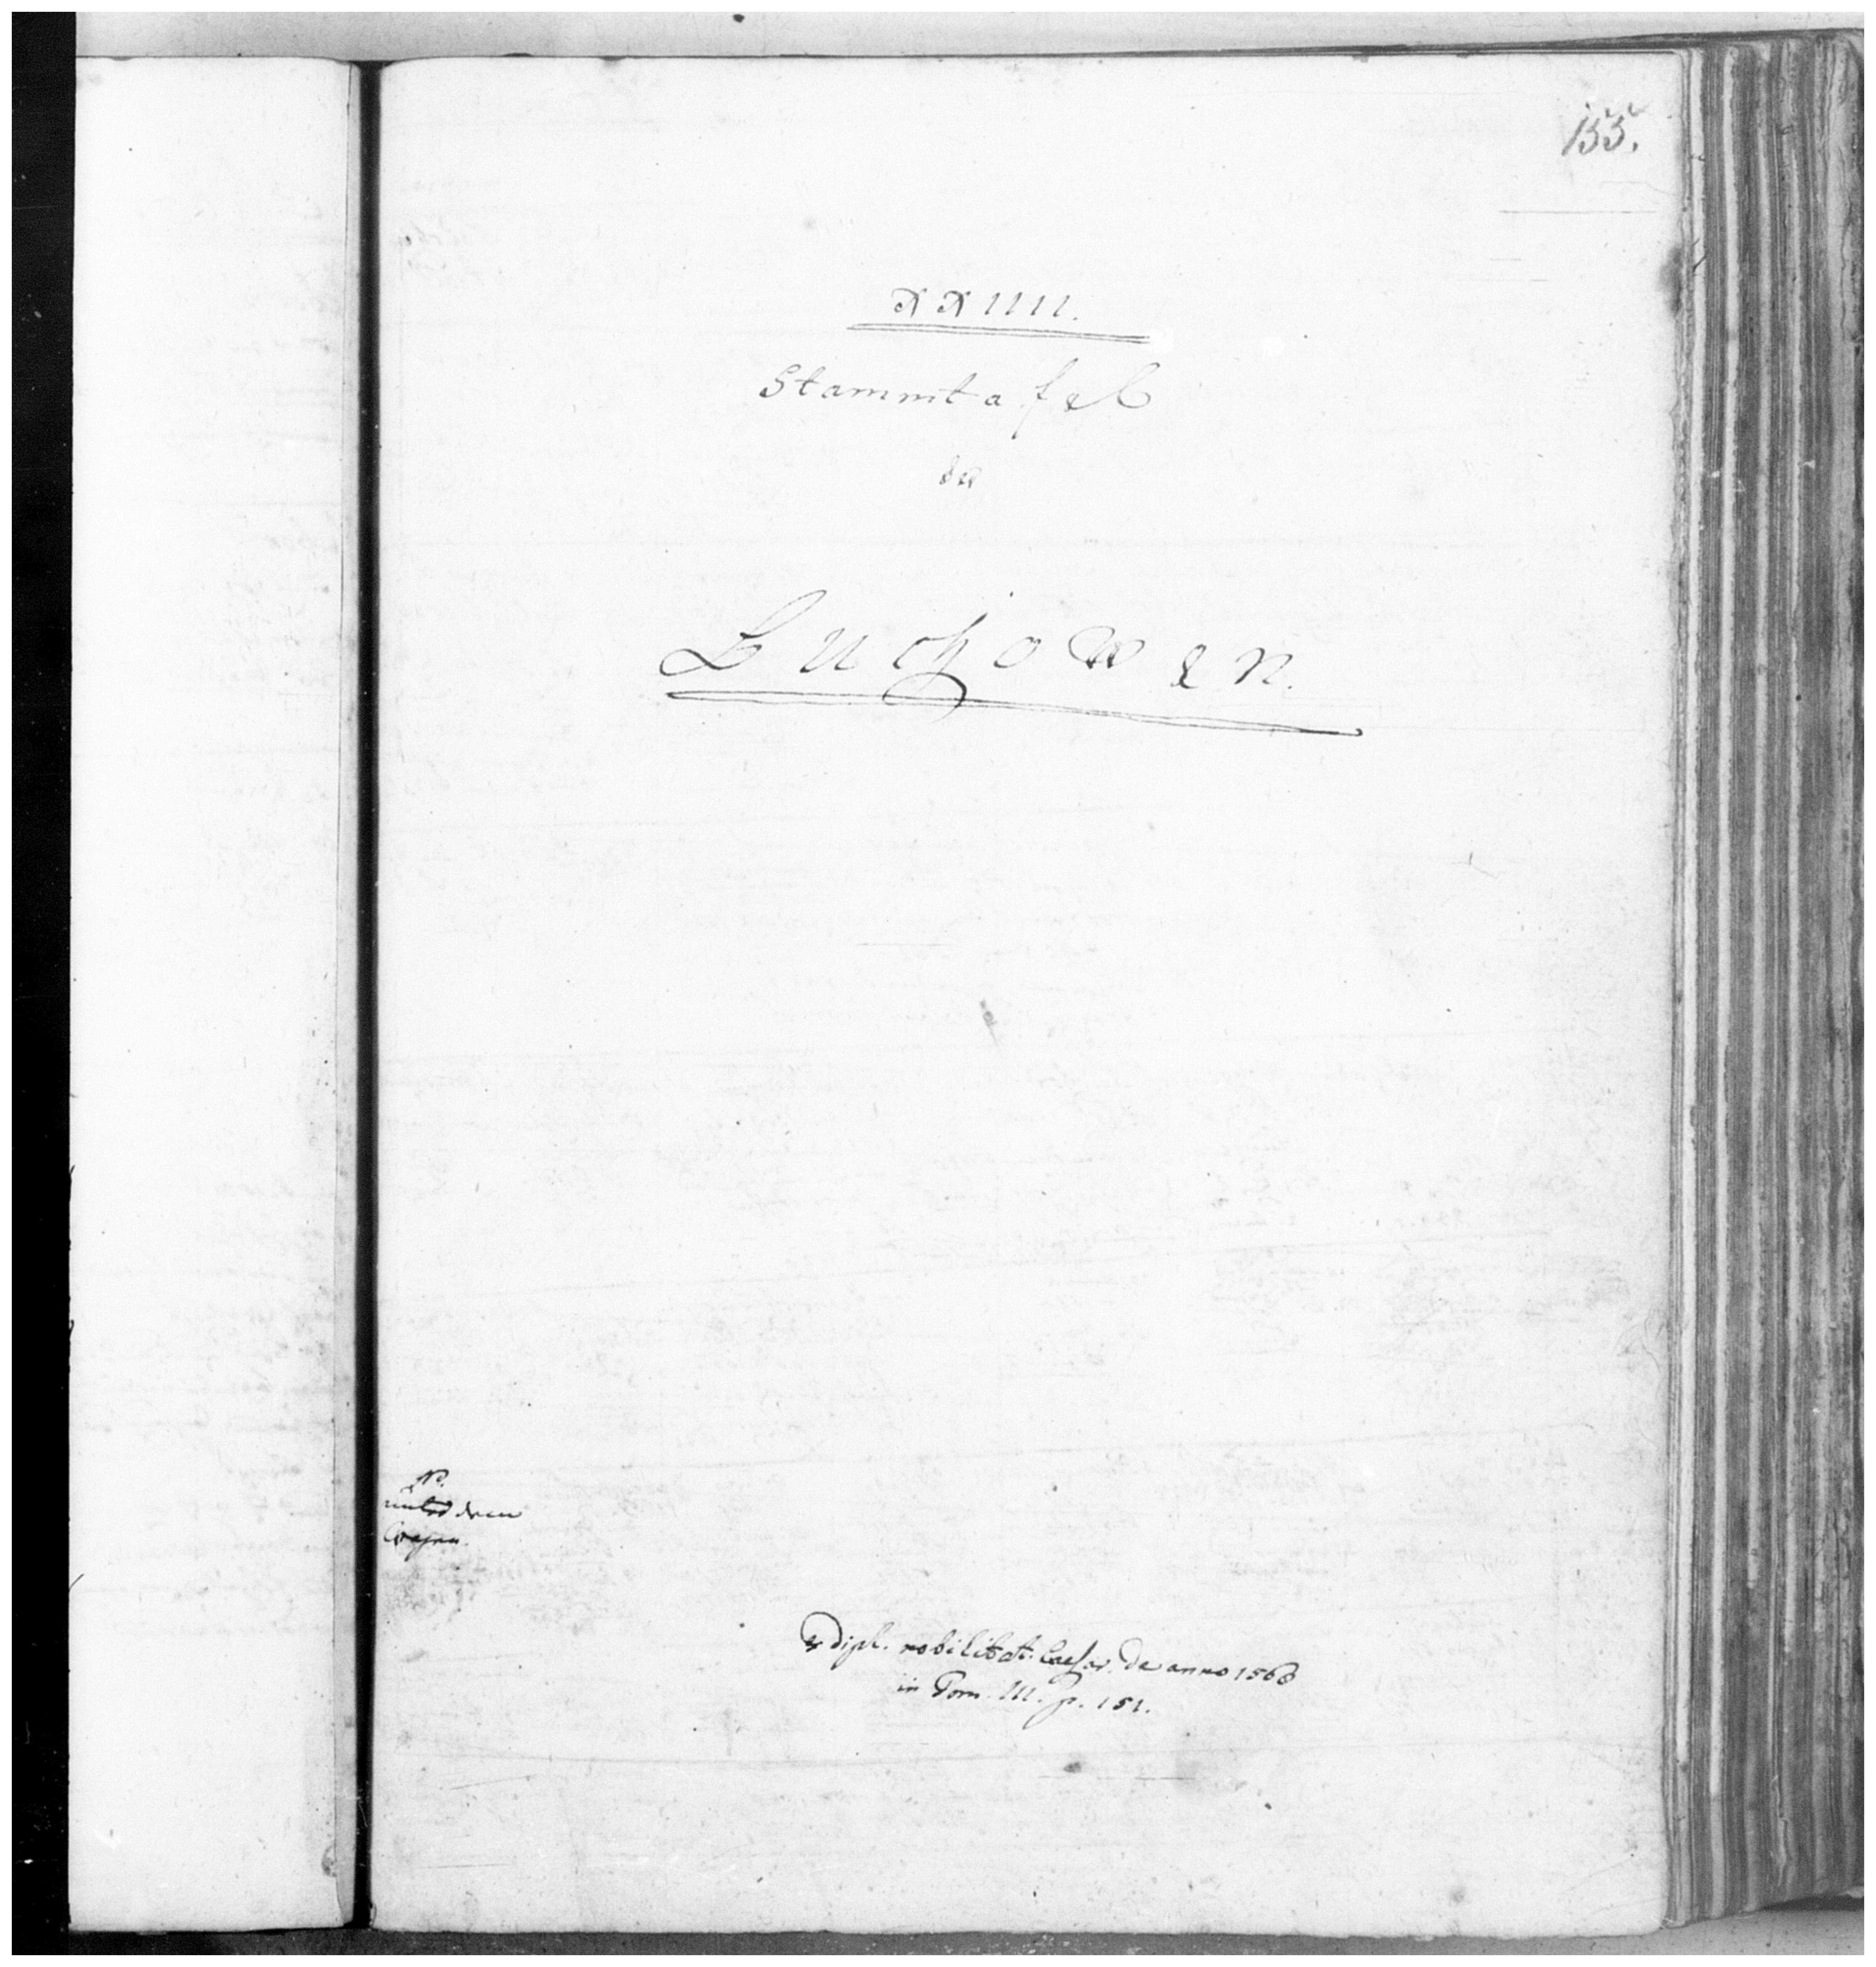 155.
XXIIII.
Stammtafel
der
Buchowen.
NB.
dem
Dipl. nobilitat. Caesar. de anno 1568
in Tom. III. p. 151.